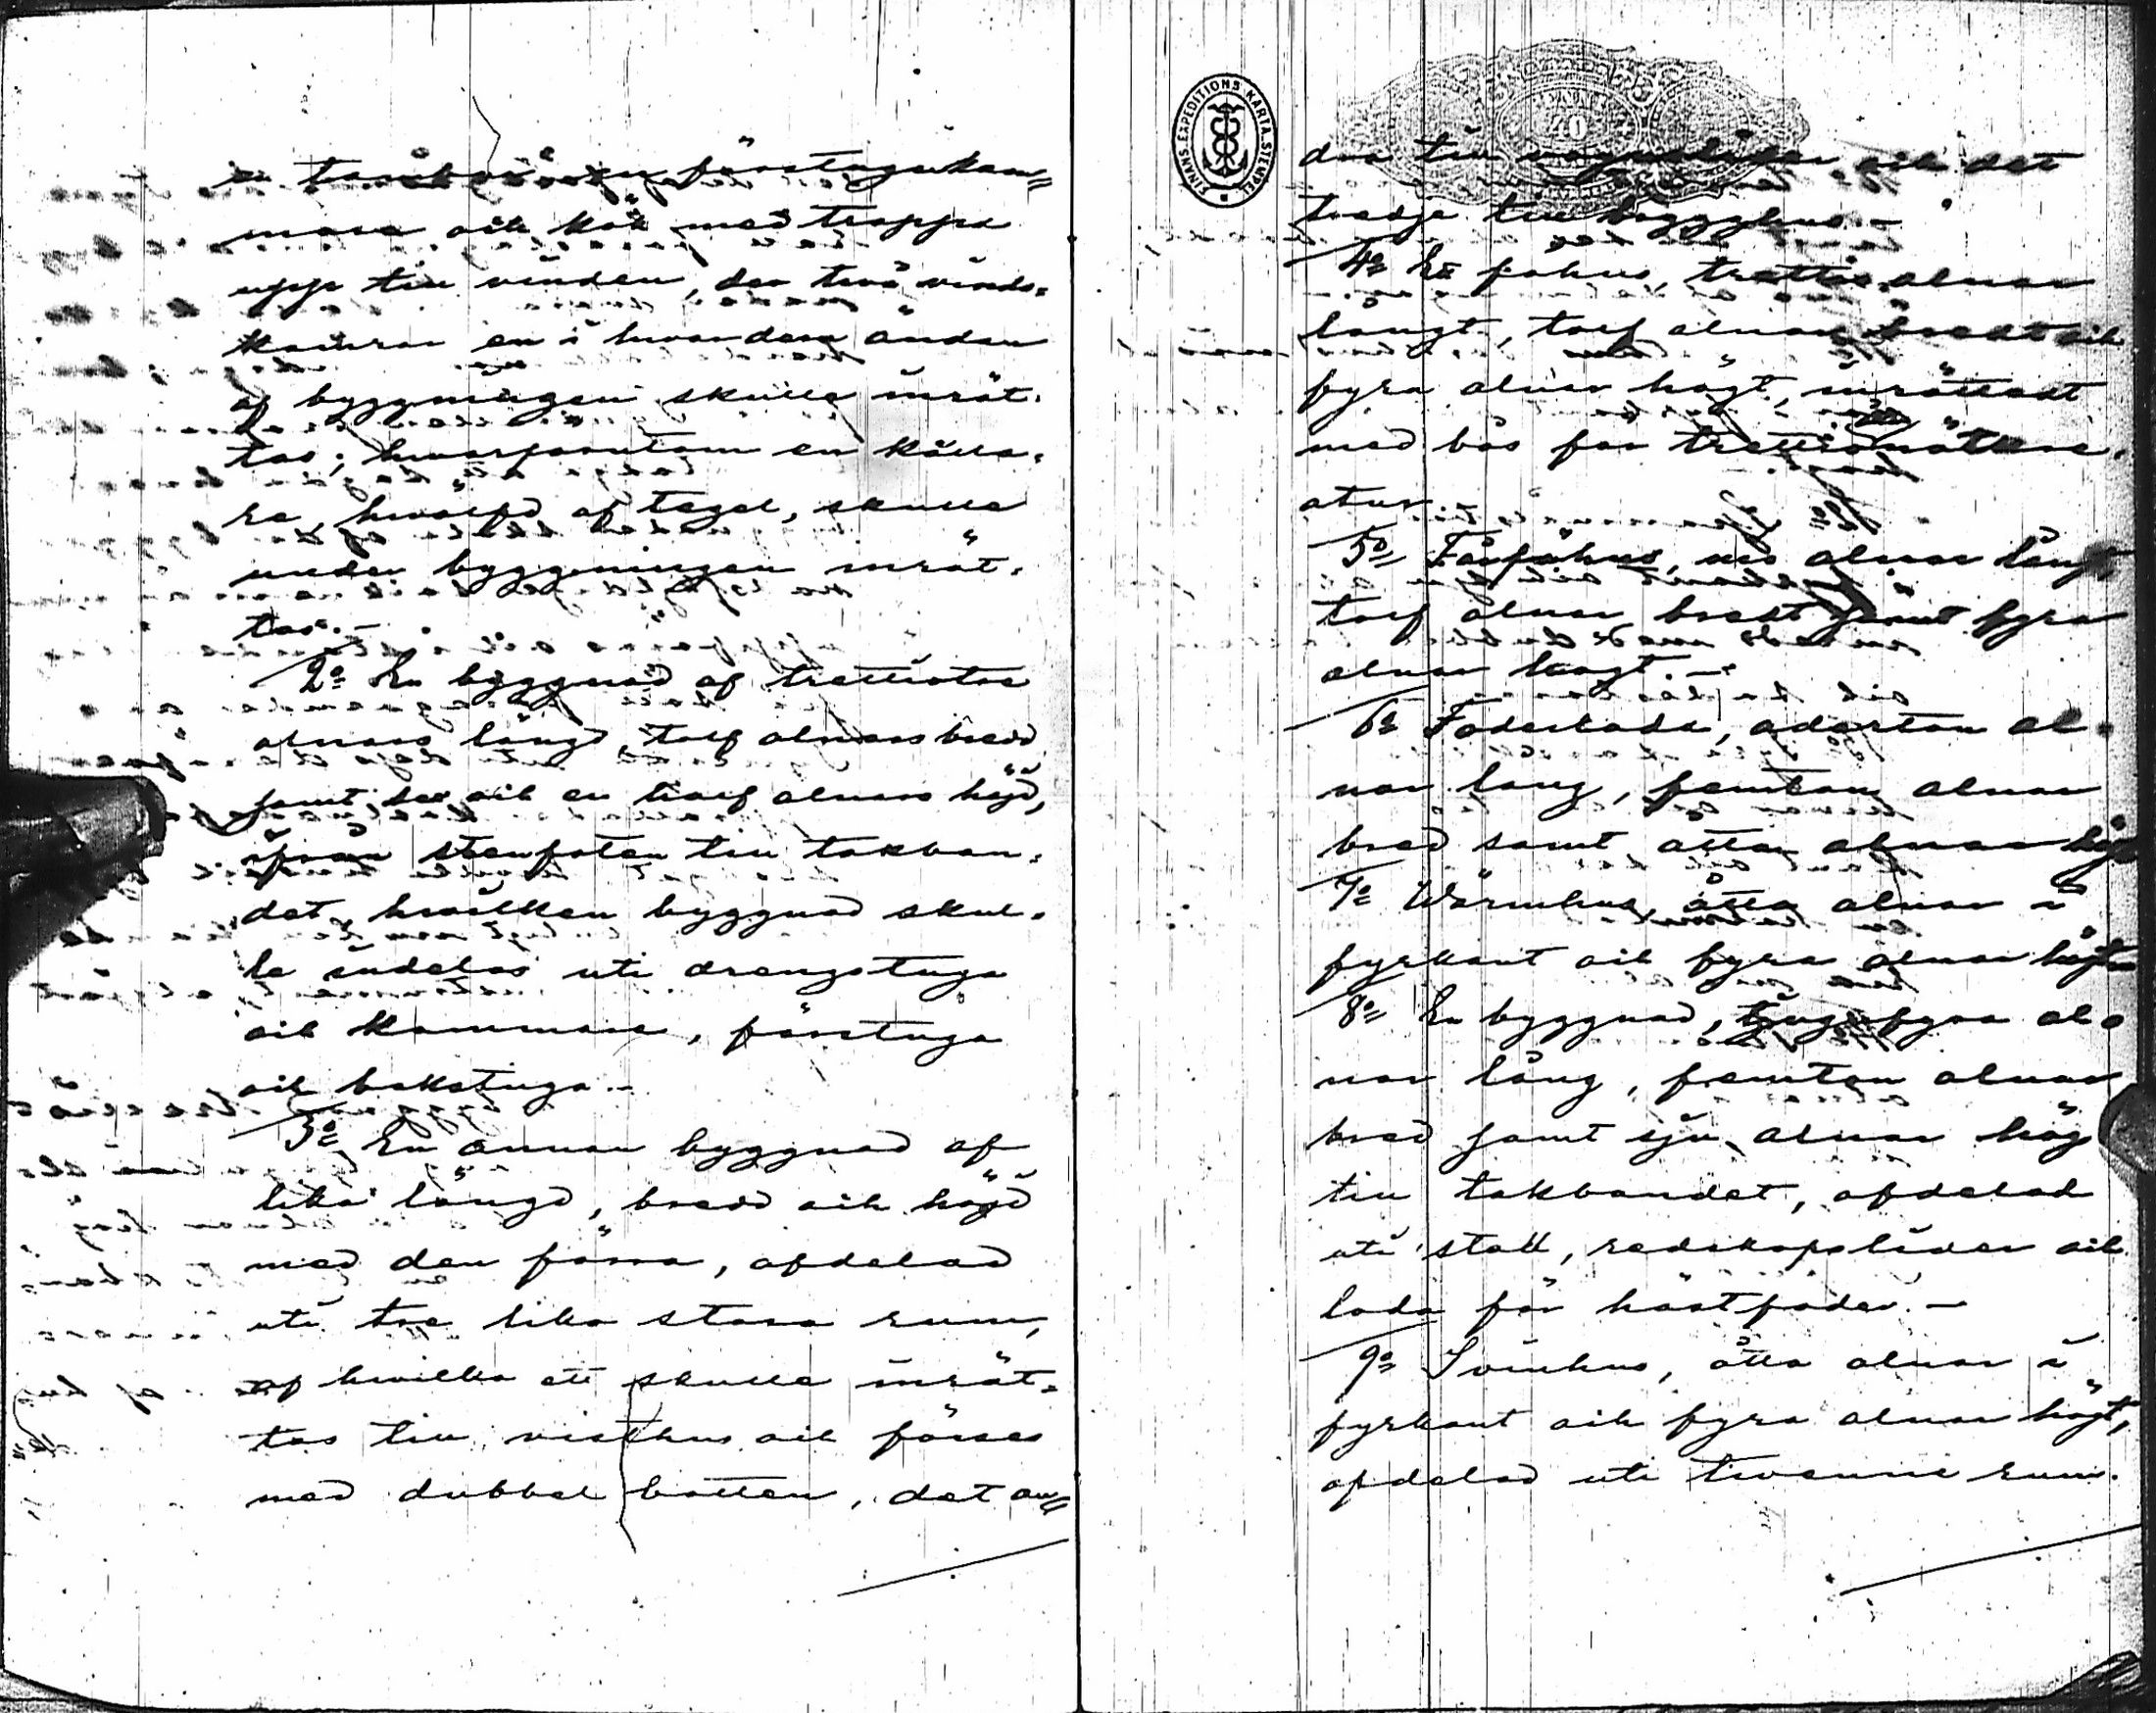 tambur, en förstugukam=
mare och kök med trappa
upp till vinden, der två vinds=
kamrar en i hvardera ändan
af byggningen skulle inrät=
tas; hvarförutom en källa=
re, hvälfd af tegel, skulle
under byggningen inrät=
tas.-
2o En byggnad af trettiotre
alnars längd, tolf alnars bredd
samt sex och en half alnars höjd,
ifrån stenfoten till takban=
det, hvilken byggnad skul=
le indelas uti drengstuga
och kammare, förstuga
och bakstuga.-
3o En annan byggnad af
lika längd, bredd och höjd
med den förra, afdelad
uti tre lika stora rum,
af hvilka ett skulle inrät=
tas till visthus och förses
med dubbel botten, det an=
FINANS. EXPEDITIONS KARTA. STEMPEL
40
dra till och det
tredje till brygghus.-
4o Ett fähus, trettio alnar
långt, tolf alnar bredt och
fyra alnar högt, inrättadt
med bås för trettio nötkre=
atur.
5o Fårfähus, nio alnar långt,
tolf alnar bredt samt fyra
alnar högt.-
6o Foderlada, aderton al=
nar lång, femton alnar
bred samt åtta alnar hög
7o Wärmhus, åtta alnar i
fyrkant och fyra alnar högt
8o En byggnad, tjugufyra al=
nar lång, femton alnar
bred samt sju alnar hög
till takbandet, afdelad
uti stall, redskapslider och
lada för hästfoder.-
9o Svinhus, åtta alnar i
fyrkant och fyra alnar högt,
afdelad uti tvenne rum.